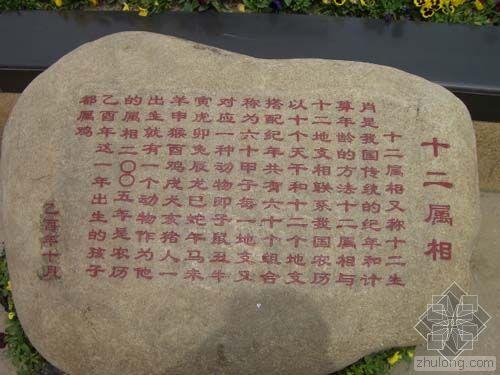 十二属相
十二属相又称十二生
肖是我国传统的纪年和计
算年龄的方法十二属相与
十二地支相联系我国农历
以十个天干和十二个地支
搭配纪年共有六十个组合
称为六十甲子每一地支又
对应一种动物即子鼠丑牛
寅虎卯兔辰龙巳蛇午马未
羊申猴酉鸡戌犬亥猪人一
出生就有一个动物作为他
的属相二〇〇五年是农历
乙酉年这一年出生的孩子
都属鸡
乙酉年十月
zhulong.com